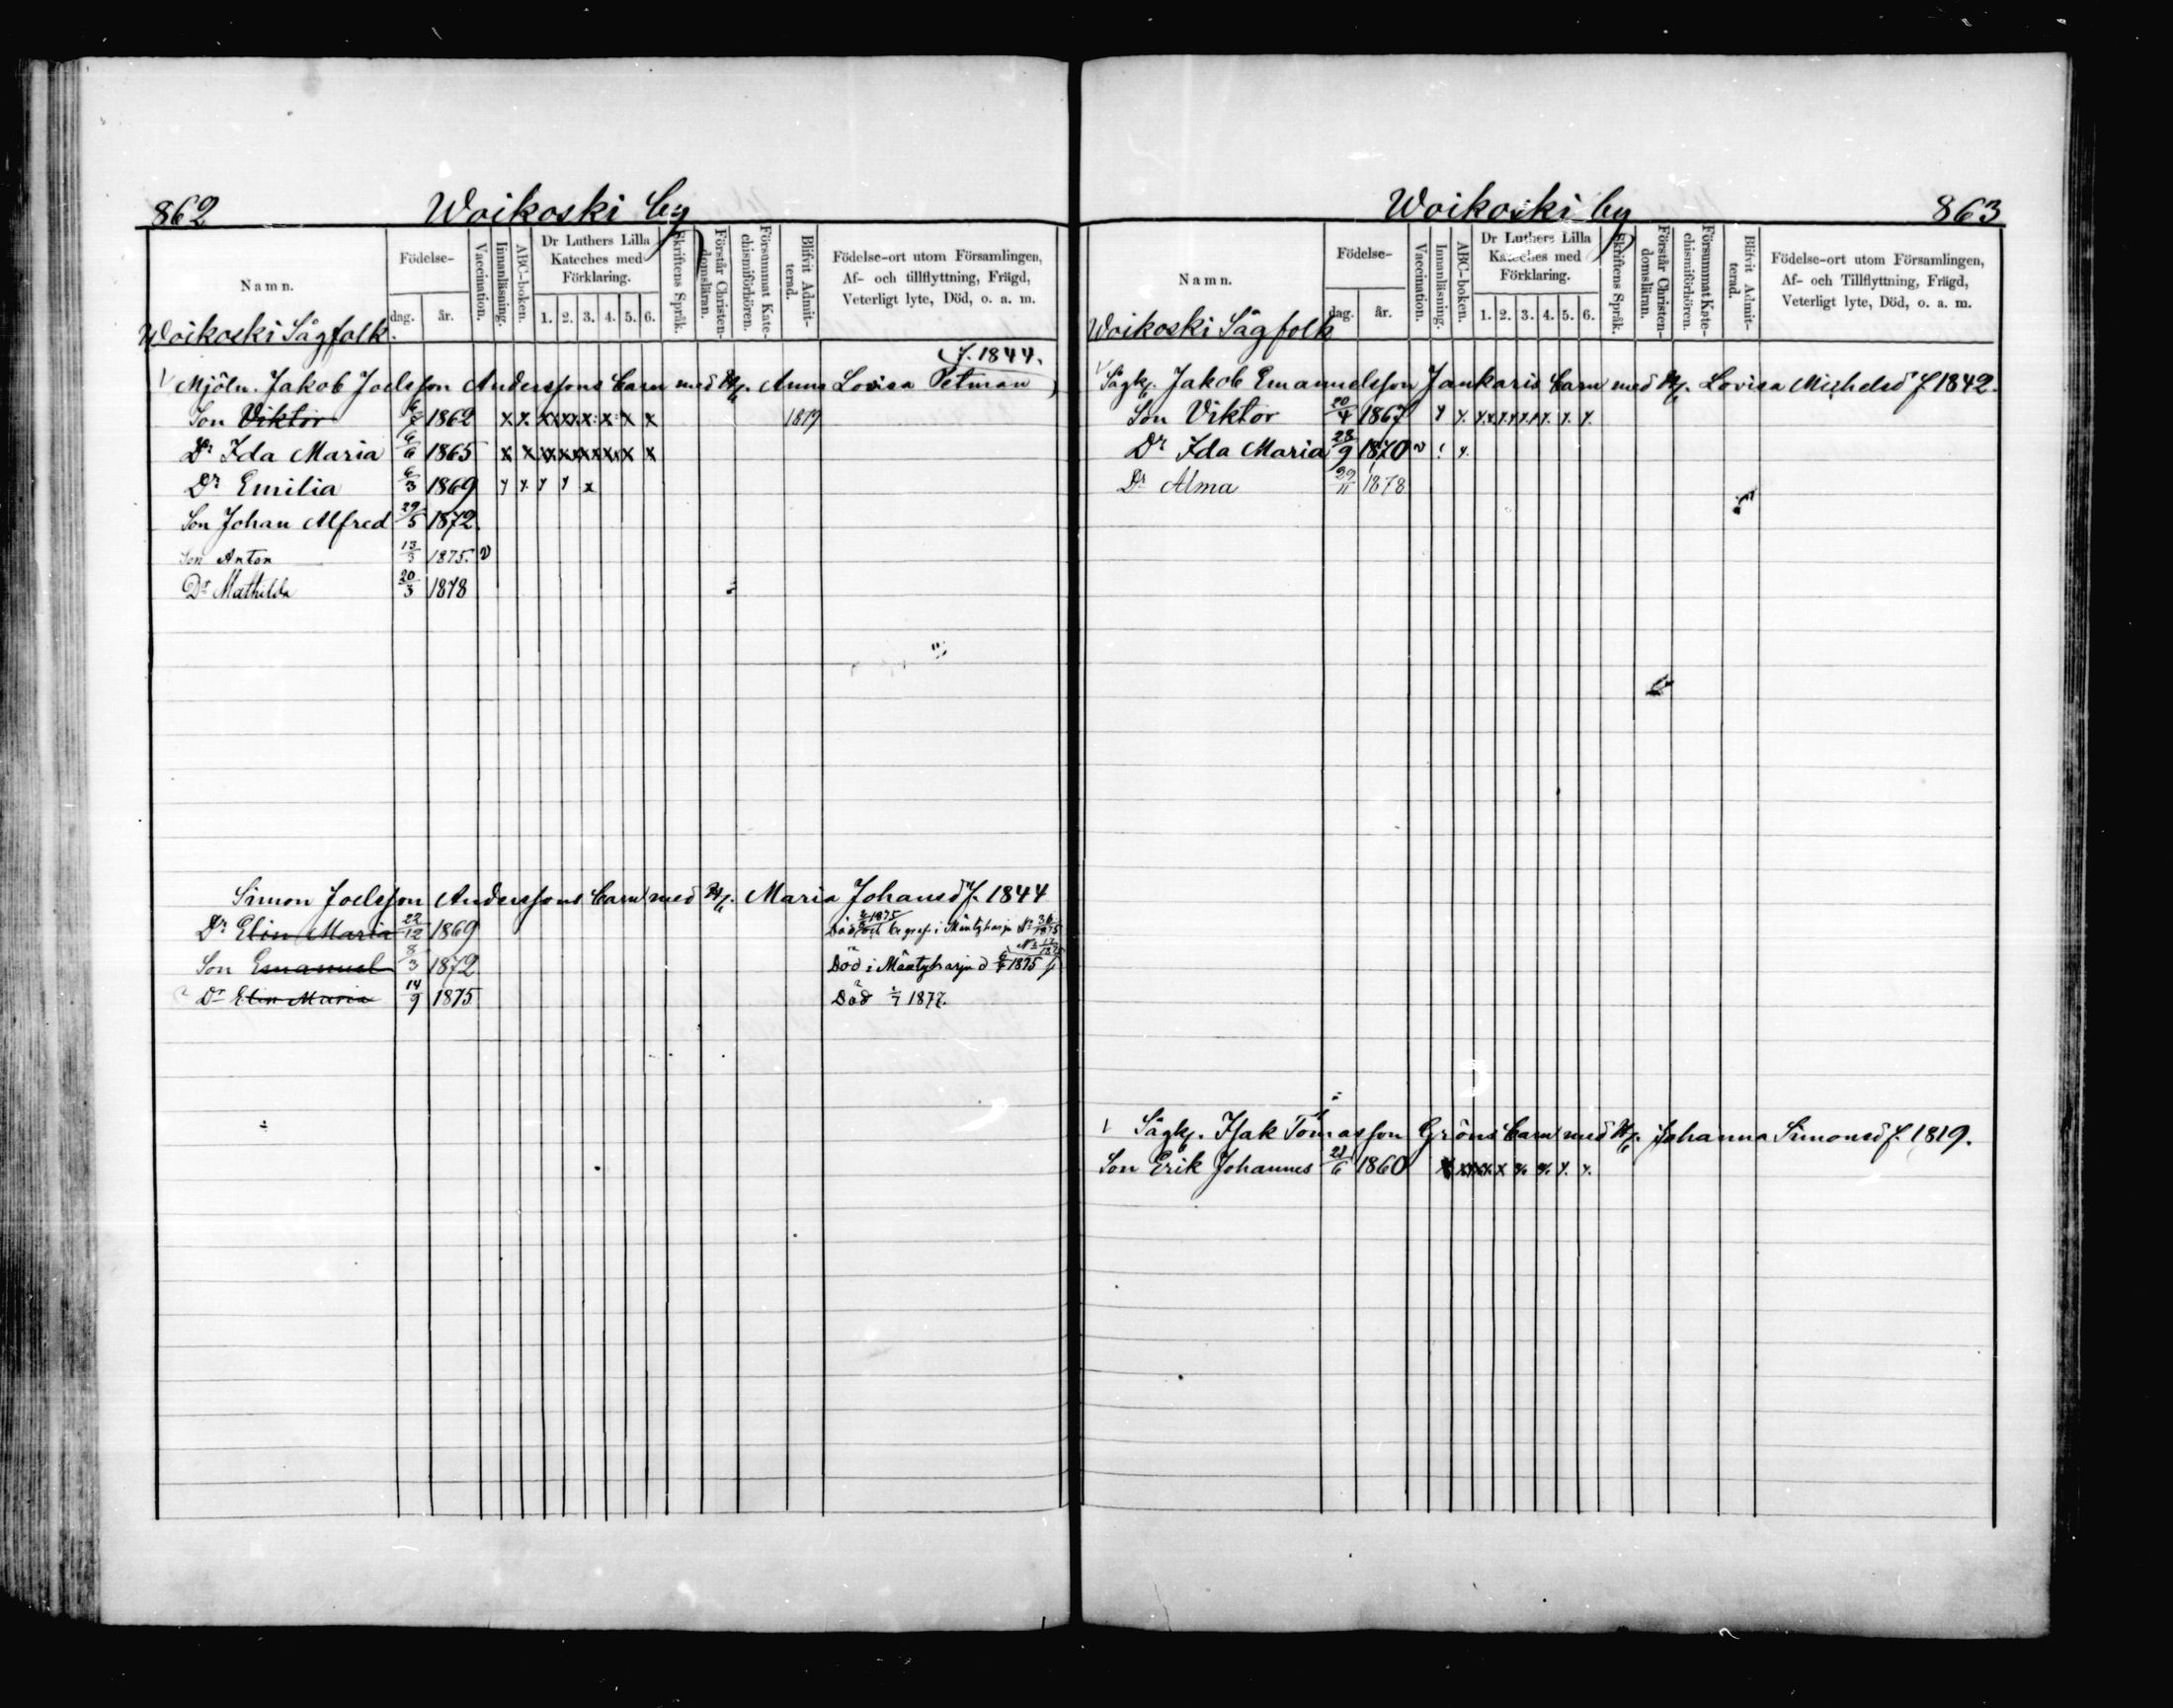 862 Woikoski by
Namn. Födelse- dag. år. Vaccination. Innanläsning. ABC-boken. Dr Luthers Lilla Kateches med Förklaring. 1. 2. 3. 4. 5. 6. Skriftens Språk. Förstår Christendomsläran. Försummat Katechismiförhören. Blifvit Admitterad. Födelse-ort utom Församlingen, Af- och tillflyttning, Frägd, Veterligt lyte, Död, o. a. m.
Woikoski Sågfolk.
f. 1844.
Mjöln. Jakob Joelsson Anderssons barn med H. Anna Lovisa Petman
Son Viktor 1862 x x x x x x x x 1879
Dr Ida Maria 6/6 1865 x x x x x x x x
Dr Emilia 6/3 1869 y y y y x
Son Johan Alfred 29/5 1872
Son Anton 13/3 1875. v
Dr Mathilda 20/3 1878
Simon Joelsson Anderssons barn med H. Maria Johansd f. 1844
Dr Elin Maria 22/12 1869 Död och begrafv i Mäntyharju
Son Emanuel 8/3 1872 Död i Mäntyharju d 1875
Dr Elin Maria 14/9 1875 Död 1877.
Woikoski by 863
Namn. Födelse- dag. år. Vaccination. Innanläsning. ABC-boken. Dr Luthers Lilla Kateches med Förklaring. 1. 2. 3. 4. 5. 6. Skriftens Språk. Förstår Christendomsläran. Försummat Katechismiförhören. Blifvit Admitterad. Födelse-ort utom Församlingen, Af- och Tillflyttning, Frägd, Veterligt lyte, Död, o. a. m.
Woikoski Sågfolk
Sågk. Jakob Emanuelsson Jankaris barn med H. Lovisa Michelsdr f 1842.
Son Viktor 20/4 1867 y y. y. x. y. y. y. y. y.
Dr Ida Maria 28/9 1870 v ! y.
Dr Alma 29/11 1878
Sågk. Isak Tomasson Gröns barn med H. Johanna Simonsd f. 1819.
Son Erik Johannes 21/6 1860 x x x x x y. y. y. y.